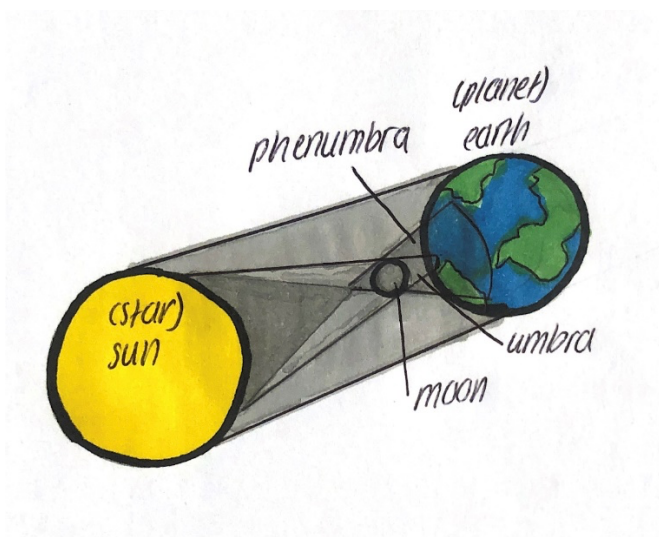 (planet)
earth
phenumbra
(star)
sun
umbra
moon